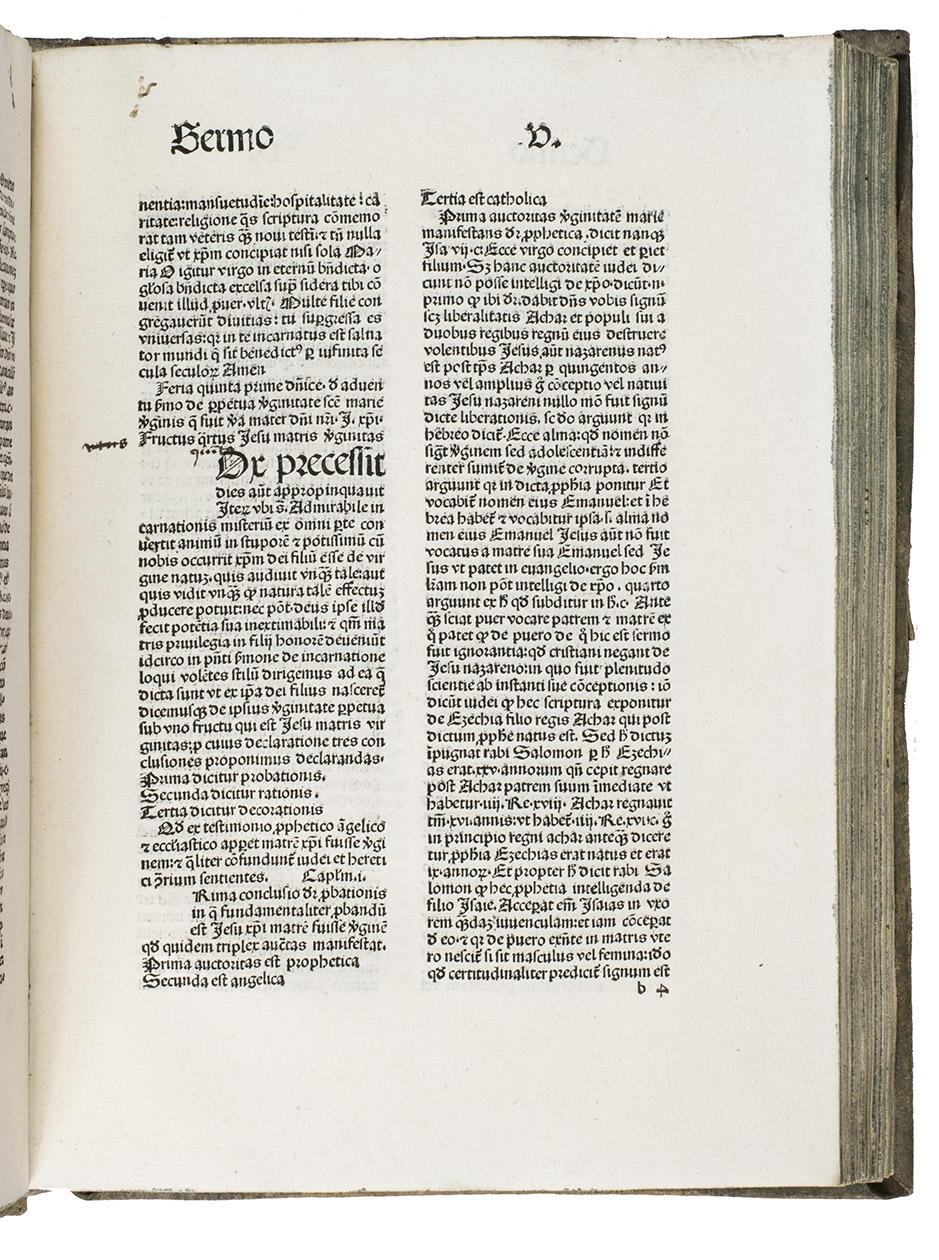 Sermo
V.
nentia: mansuetudīe: hospitalitate: ca
ritate: religione q̄s scriptura cōmemo
rat tam veteris q̄ꝫ noui testī: ⁊ tn̄ nulla
eligit᷑ vt xp̄m concipiat nisi sola Ma/
ria O igitur virgo in eternū bn̄dicta. o
gl̄osa bn̄dicta excelsa sup̄ sidera tibi cō
uenit illud ꝓuer. vlt̄. Multe filie con
gregauerūt diuitias: tu suꝑgressa es
vniuersas: qr in te incarnatus est salua
tor mundi q̄ sit bēnedictꝰ ꝑ īnfinita se
cula seculoꝝ Amen
Feria quinta prime dn̄ice. đ aduen
tu ẜmo de ꝑpetua v̄ginitate scē marie
v̄ginis q̄ fuit v̄a mater dn̄i nr̄i. J. xp̄i.
Fructus q̄rtus Jesu matris v̄ginitas
Ox precessit
dies aūt appropinquauit
Iteꝝ vbi s̄. Admirabile in
carnationis misteriū ex omni ꝑte con
uertit animū in stuporē ⁊ potissimū cū
nobis occurrit xp̄m dei filiū esse de vir
gine natuꝫ. quis audiuit vnq̄ꝫ tale: aut
quis vidit vnq̄ꝫ ꝙ natura talē effectuꝫ
ꝓducere potuit: nec pōt. deus ipse illđ
fecit potētia sua inextimabili: ⁊ qm̄ ma
tris priuilegia in filij honorē deueniūt
idcirco in pn̄ti ẜmone de incarnatione
loqui volētes stilū dirigemus ad ea q̄
dicta sunt vt ex ip̄a dei filius nasceret᷑
dicemusqꝫ de ipsius v̄ginitate ꝑpetua
sub vno fructu qui est Jesu matris vir
ginitas: ꝓ cuius declaratione tres con
clusiones proponimus declarandas.
Prima dicitur probationis.
Secunda dicitur rationis.
Tertia dicitur decorationis
Qđ ex testimonio ꝓphetico āgelico
⁊ eccl̄iastico apꝑet matrē xp̄i fuisse v̄gi
nem: ⁊ q̄liter cōfundunt᷑ iudei et hereti
ci ꝯ̄rium sentientes. Capl̄m .i.
Rima conclusio dr̄ ꝓbationis
in q̄ fundamentaliter ꝓbandū
est Jesu xp̄i matrē fuisse v̄ginē
qđ quidem triplex auc̄tas manifestat.
Prima auctoritas est prophetica
Secunda est angelica
Tertia est catholica
Prima auctoritas v̄ginitatē marie
manifestans dr̄ ꝓphetica. dicit nanqꝫ
Isa vij. c. Ecce virgo concipiet et ꝑiet
filium. Sꝫ hanc auctoritatē iudei di/
cunt nō posse intelligi de xp̄o. dicūt .n.
primo ꝙ ibi dr̄. dabit dn̄s vobis signū
scꝫ liberalitatis Achar et populi sui a
duobus regibus regnū eius destruere
volentibus Jesus aūt nazarenus natꝰ
est post tp̄s Achar ꝑ quingentos an/
nos vel amplius ḡ cōceptio vel natiui
tas Jesu nazareni nullo mō fuit signū
dicte liberationis. sc̄do arguunt qr in
hebreo dicit᷑. Ecce alma: qđ nomen nō
sigt᷑ v̄ginem sed adolescentiā: ⁊ indiffe
renter sumit᷑ de v̄gine corrupta. tertio
arguunt qr in dicta ꝓphia ponitur Et
vocabit᷑ nomen eius Emanuel: et ī he
brea habet᷑ ⁊ vocabitur ipsa .s. alma no
men eius Emanuel Jesus aūt nō fuit
vocatus a matre sua Emanuel sed Je
sus vt patet in euangelio. ergo hoc ẜm
līam non pōt intelligi de xp̄o. quarto
arguunt ex ħ qđ subditur in ħ. c. Ante
q̄ꝫ sciat puer vocare patrem ⁊ matrē ex
q̄ patet ꝙ de puero de q̄ hic est sermo
fuit ignorantia: qđ cristiani negant de
Jesu nazareno: in quo fuit plenitudo
scientie ab instanti sue cōceptionis: iō
dicūt iudei ꝙ hec scriptura exponitur
de Ezechia filio regis Achar qui post
dictum ꝓphē natus est. Sed ħ dictuꝫ
īpugnat rabi Salomon ꝑ ħ Ezechi/
as erat .xxv. annorum qn̄ cepit regnare
post Achar patrem suum īmediate vt
habetur .iiij. Re. xviij. Achar regnauit
tm̄ .xvi. annis: vt habet᷑ .iiij. Re. xvi. c. ḡ
in principio regni achar anteq̄ꝫ dicere
tur ꝓphia Ezechias erat natus et erat
ix. annoꝝ. Et propter ħ dicit rabi Sa
lomon ꝙ hec ꝓphetia intelligenda de
filio Isaie. Acceꝑat em̄ Isaias in vxo
rem q̄daꝫ iuuenculam: et iam cōceꝑat
đ eo. ⁊ qr de puero exn̄te in matris vte
ro nescit᷑ si sit masculus vel femina: iđo
qđ certitudinaliter predicit᷑ signum est
b 4